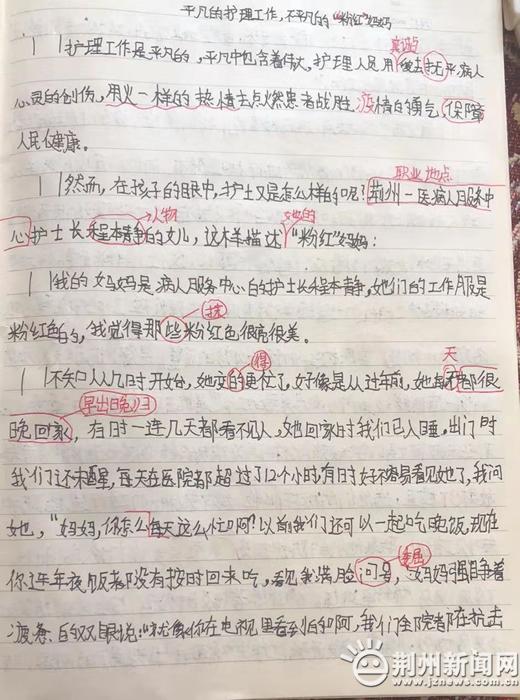 平凡的护理工作,不平凡的“粉红”妈妈
护理工作是平凡的,平凡中包含着伟大。护理人员用爱去抚平病人
心灵的创伤,用火一样的热情去点燃患者战胜疫情的勇气,保障
人民健康。
职业地点
然而,在孩子的眼中,护士又是怎么样的呢?荆州一医病人服务中
人物
她的
心护士长程本静的女儿,这样描述“粉红”妈妈:
我的妈妈是病人服务中心的护士长程本静,她们的工作服是
粉红色的,我觉得那些粉红色很亮很美。
得
天
不知从几时开始,她变的更忙了,好像是从过年前,她每都很
早出晚归
晚回家,有时一连几天都看不见人,她回家时我们已入睡,出门时
我们还未醒,每天在医院都超过了12个小时,有时好不容易看见她了,我问
她,“妈妈,你怎么每天这么忙啊?以前我们还可以一起吃晚饭,现在
你连年夜饭都没有按时回来吃,看见我满脸问号,妈妈强睁着
疲惫的双眼说:“就像你在电视里看到的啊,我们全院都在抗击
荆州新闻网
www.jznews.com.cn